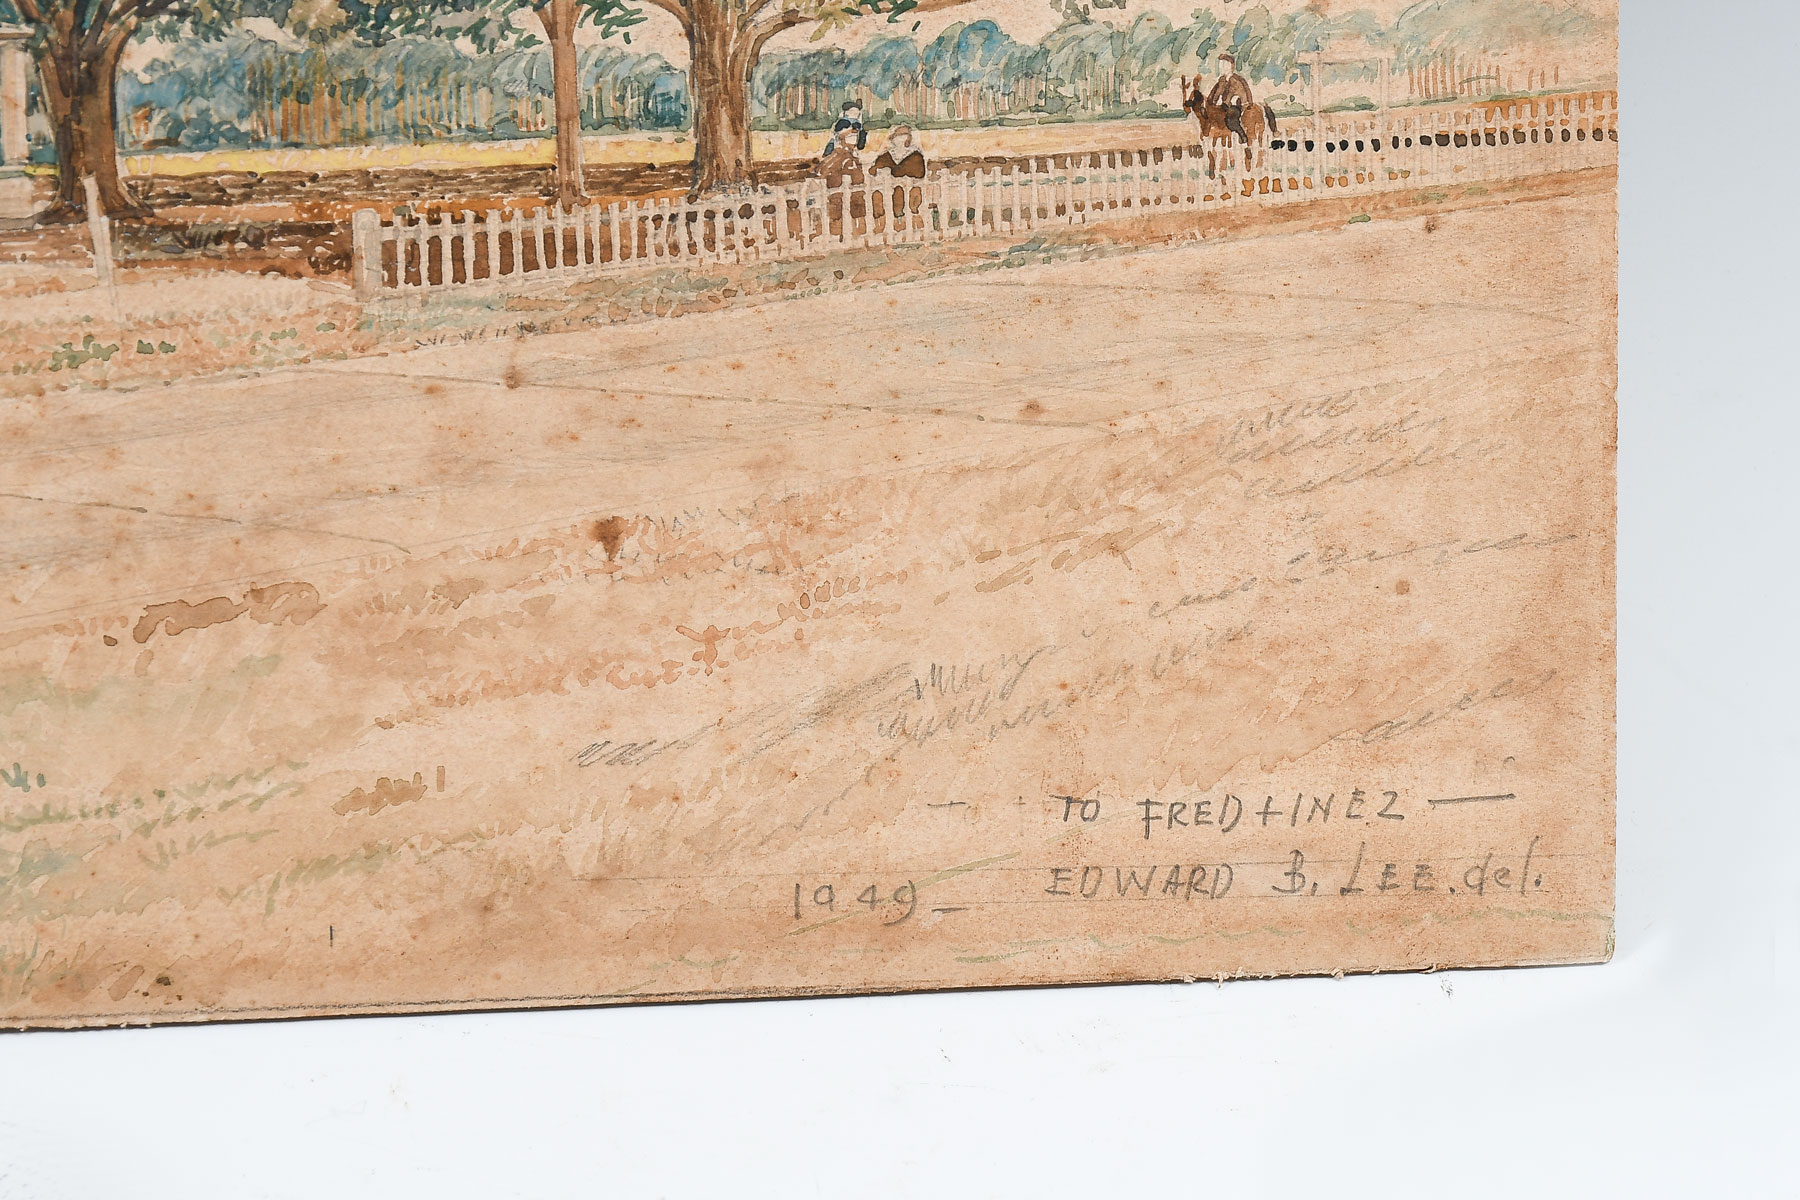 — TO FRED + INEZ —
1949 — EDWARD B. LEE. del.